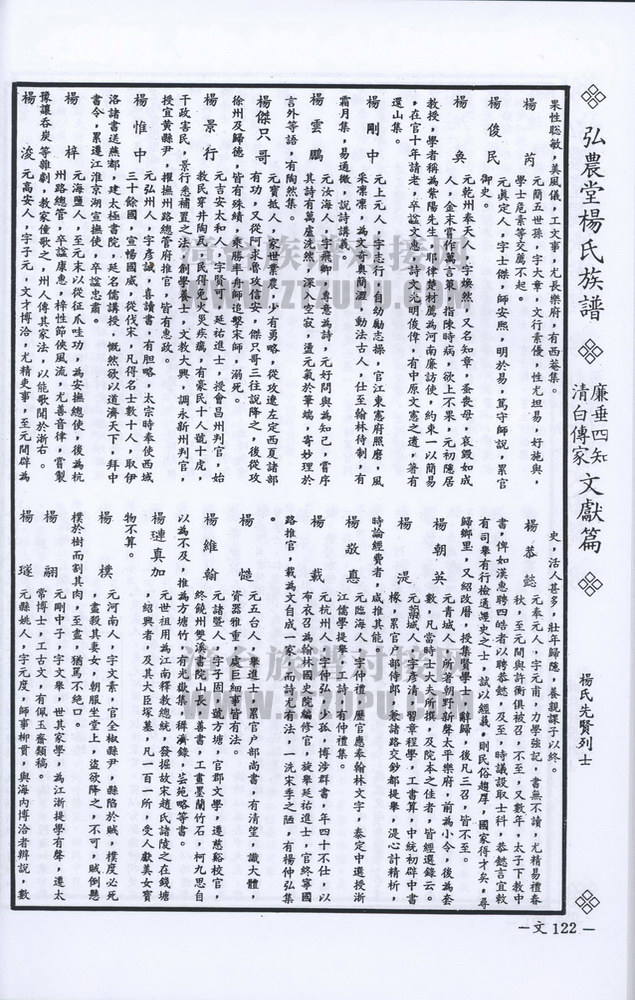 弘農堂楊氏族譜
廉垂四知
清白傳家
文獻篇
楊氏先賢列士
果性聪敏，美風儀，工文事，尤長樂府，有西菴集。
楊芮　元簡五世孫，字大章，文行素優，性尤坦易，好施與，
學士危素等交薦不起。
楊俊民　元真定人，字士傑，師安熙，明於易，篤守師說，累官
御史。
楊奐　元乾州奉天人，字煥然，又名知章，蚤喪母，哀毀如成
人，金末嘗作萬言策，指陳時病，欲上不果，元初隱居
教授，學者稱為紫陽先生，耶律楚材薦為河南廉訪使，約束一以簡易
，在官十年請老，卒諡文憲，詩文光明俊偉，有中原文憲之遺，著有
還山集。
楊剛中　元上元人，字志行，自幼勵志操，官江東憲府照磨，風
采凜凜，為文奇奧簡澀，動法古人，仕至翰林待制，有
霜月集，易通微，說詩講義。
楊雲鵬　元汝海人，字飛卿，專意為詩，元好問與為知己，嘗序
其詩有萬慮洗然，深入空寂，盪元氣於筆端，寄妙理於
言外等語，有陶然集。
楊傑只哥　元寶坻人，家世業農，少有勇略，從攻遼左定西夏諸部
有功，又從阿朮魯攻信安，傑只哥三往說降之，後從攻
徐州及歸德，皆有殊績，乘勝率舟師追擊宋師，溺死。
楊景行　元吉安太和人，字賢可，延祐進士，授會昌州判官，始
教民穿井陶瓦，民得免火災疾癘，有豪民十人號十虎，
干政害民，景行悉補置之法，創學養士，文教大興，調永新州判官，
授宜黃縣尹，擢撫州路總管府推官，皆有惠政。
楊惟中　元弘州人，字彥誠，喜讀書，有胆略，太宗時奉使西域
三十餘國，宣暢國威，從伐宋，凡得名士數十人，取伊
洛諸書送燕都，建太極書院，延名儒講授，慨然欲以道濟天下，拜中
書令，累遷江淮京湖宣撫使，卒諡忠肅。
楊梓　元海鹽人，至元末以從征爪哇功，為安撫總使，後為杭
州路總管，卒諡康惠，梓性節俠風流，尤善音律，嘗製
豫讓吞炭等雜劇，教家僮歌之，州人傳其家法，以能歌聞於浙右。
楊浚　元高安人，字子元，文才博洽，尤精吏事，至元間辟為
史，活人甚多，壯年歸隱，養親課子以終。
楊恭懿　元奉元人，字元甫，力學強記，書無不讀，尤精易禮春
秋，至元間與許衡俱被召，不至，又數年，太子下教中
書，俾如漢惠聘四皓者以聘恭懿，及至，時議設取士科，恭懿言宜敕
有司舉有行檢通經史之士，試以經義，則民俗趨厚，國家得才矣，尋
歸鄉里，又紹改曆，授集賢學士，辭歸，後凡三召，皆不至。
楊朝英　元青城人，所著朝野新聲太平樂府，前為小令，後為套
數，凡當時士大夫所撰，及院本之佳者，皆經選錄云。
楊湜　元藁城人，字彥清，習章程學，工書算，中統初辟中書
椽，累官戶部侍郎，兼諸路交鈔都提舉，湜心計精析，
時論經費者，咸推其能。
楊敬悳　元臨海人，字仲禮，歷官應奉翰林文字，泰定中選授浙
江儒學提舉，工詩，有仲禮集。
楊載　元杭州人，字仲弘，少孤，博涉群書，年四十不仕，以
布衣召為翰林國史院編修官，旋舉延祐進士，官終寧國
路推官，載為文自成一家，而詩尤有法，一洗宋季之陋，有楊仲弘集
。
楊慥　元五台人，舉進士，累官戶部尚書，有清望，識大體，
資器雅重，處巨細事皆有法。
楊維翰　元諸暨人，字子固，號方塘，官郡文學，遷慈谿校官，
終饒州雙溪書院山長，善書，工畫墨蘭竹石，柯九思自
以為不及，推為方塘竹，有光嶽集，稗演錄，芸苑略等書。
楊璉真加　元世祖用為江南釋教總統，發掘故宋趙氏諸陵之在錢塘
，紹興者，及其大臣塚墓，凡一百一所，受人獻美女寶
物不算。
楊樸　元河南人，字文素，官全椒縣尹，縣陷於賊，樸度必死
，盡殺其妻女，朝服坐堂上，盜欲降之，不可，賊倒懸
樸於樹而割其肉，至盡，猶罵不絕口。
楊翮　元剛中子，字文舉，世其家學，為江浙提學有聲，遷太
常博士，工古文，有佩玉齋類稿。
楊璲　元縣姚人，字元度，師事柳貫，與海內博洽者辯說，數
－文122－